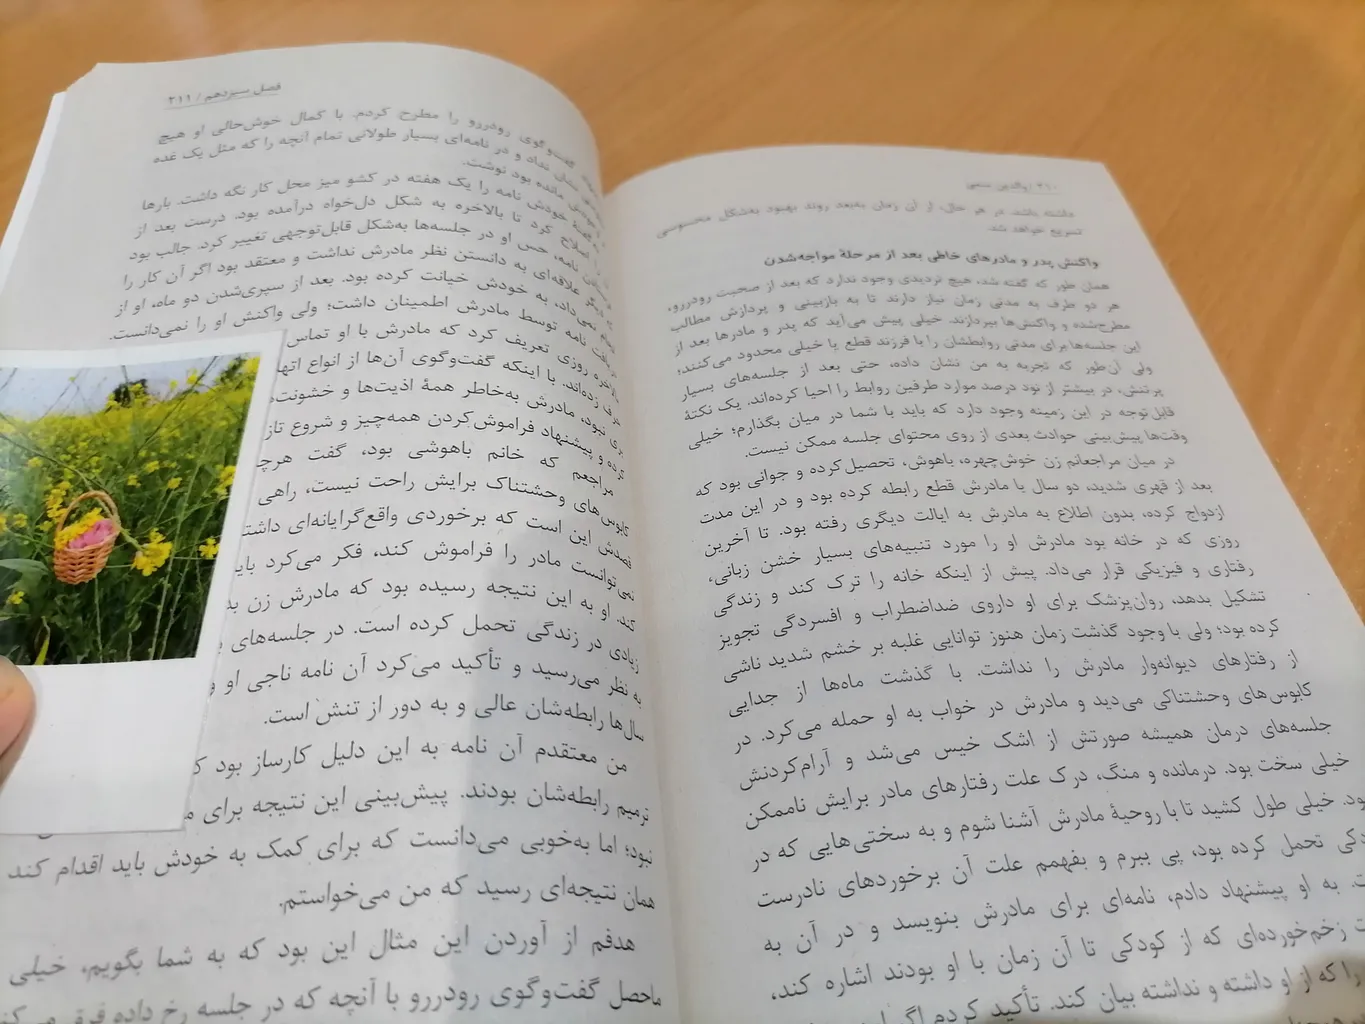 ۳۱۰ / والدین سمی
داشته باشد. در هر حال، از آن زمان به‌بعد روند بهبود به‌شکل محسوسی
تسریع خواهد شد.
واکنش پدر و مادرهای خاطی بعد از مرحلهٔ مواجه‌شدن
همان طور که گفته شد، هیچ تردیدی وجود ندارد که بعد از صحبت رودررو،
هر دو طرف به مدتی زمان نیاز دارند تا به بازبینی و پردازش مطالب
مطرح‌شده و واکنش‌ها بپردازند. خیلی پیش می‌آید که پدر و مادرها بعد از
این جلسه‌ها برای مدتی روابطشان را با فرزند قطع یا خیلی محدود می‌کنند؛
ولی آن‌طور که تجربه به من نشان داده، حتی بعد از جلسه‌های بسیار
پرتنش، در بیشتر از نود درصد موارد طرفین روابط را احیا کرده‌اند. یک نکتهٔ
قابل توجه در این زمینه وجود دارد که باید با شما در میان بگذارم؛ خیلی
وقت‌ها پیش‌بینی حوادث بعدی از روی محتوای جلسه ممکن نیست.
در میان مراجعانم زن خوش‌چهره، باهوش، تحصیل‌کرده و جوانی بود که
بعد از قهری شدید، دو سال با مادرش قطع رابطه کرده بود و در این مدت
ازدواج کرده، بدون اطلاع به مادرش به ایالت دیگری رفته بود. تا آخرین
روزی که در خانه بود مادرش او را مورد تنبیه‌های بسیار خشن زبانی،
رفتاری و فیزیکی قرار می‌داد. پیش از اینکه خانه را ترک کند و زندگی
تشکیل بدهد، روان‌پزشک برای او داروی ضداضطراب و افسردگی تجویز
کرده بود؛ ولی با وجود گذشت زمان هنوز توانایی غلبه بر خشم شدید ناشی
از رفتارهای دیوانه‌وار مادرش را نداشت. با گذشت ماه‌ها از جدایی
کابوس‌های وحشتناکی می‌دید و مادرش در خواب به او حمله می‌کرد. در
جلسه‌های درمان همیشه صورتش از اشک خیس می‌شد و آرام‌کردنش
خیلی سخت بود. درمانده و منگ، درک علت رفتارهای مادر برایش ناممکن
بود. خیلی طول کشید تا با روحیهٔ مادرش آشنا شوم و به سختی‌هایی که در
تحمل کرده بود، پی ببرم و بفهمم علت آن برخوردهای نادرست
به او پیشنهاد دادم، نامه‌ای برای مادرش بنویسد و در آن به
زخم‌خورده‌ای که از کودکی تا آن زمان با او بودند اشاره کند،
را که از او داشته و نداشته بیان کند. تأکید کردم اگر
فصل سیزدهم / ۳۱۱
گفت‌وگوی رودررو را مطرح کردم. با کمال خوش‌حالی او هیچ
نشان نداد و در نامه‌ای بسیار طولانی تمام آنچه را که مثل یک غده
مانده بود نوشت.
خودش نامه را یک هفته در کشو میز محل کار نگه داشت. بارها
اصلاح کرد تا بالاخره به شکل دل‌خواه درآمده بود. درست بعد از
نامه، حس او در جلسه‌ها به‌شکل قابل‌توجهی تغییر کرد. جالب بود
دیگر علاقه‌ای به دانستن نظر مادرش نداشت و معتقد بود اگر آن کار را
نمی‌داد، به خودش خیانت کرده بود. بعد از سپری‌شدن دو ماه، او از
نامه توسط مادرش اطمینان داشت؛ ولی واکنش او را نمی‌دانست.
روزی تعریف کرد که مادرش با او تماس
زده‌اند. با اینکه گفت‌وگوی آن‌ها از انواع
نبود، مادرش به‌خاطر همهٔ اذیت‌ها و
کرده و پیشنهاد فراموش‌کردن همه‌چیز و شروع
مراجعم که خانم باهوشی بود، گفت
کابوس‌های وحشتناک برایش راحت نیست، راهی
قصدش این است که برخوردی واقع‌گرایانه‌ای
نمی‌توانست مادر را فراموش کند، فکر می‌کرد
کند. او به این نتیجه رسیده بود که مادرش زن
زیادی در زندگی تحمل کرده است. در جلسه‌های
به نظر می‌رسید و تأکید می‌کرد آن نامه ناجی او
سال‌ها رابطه‌شان عالی و به دور از تنش است.
من معتقدم آن نامه به این دلیل کارساز بود
ترمیم رابطه‌شان بودند. پیش‌بینی این نتیجه برای
نبود؛ اما به‌خوبی می‌دانست که برای کمک به خودش باید اقدام کند
همان نتیجه‌ای رسید که من می‌خواستم.
هدفم از آوردن این مثال این بود که به شما بگویم، خیلی
ماحصل گفت‌وگوی رودررو با آنچه که در جلسه رخ داده فرق